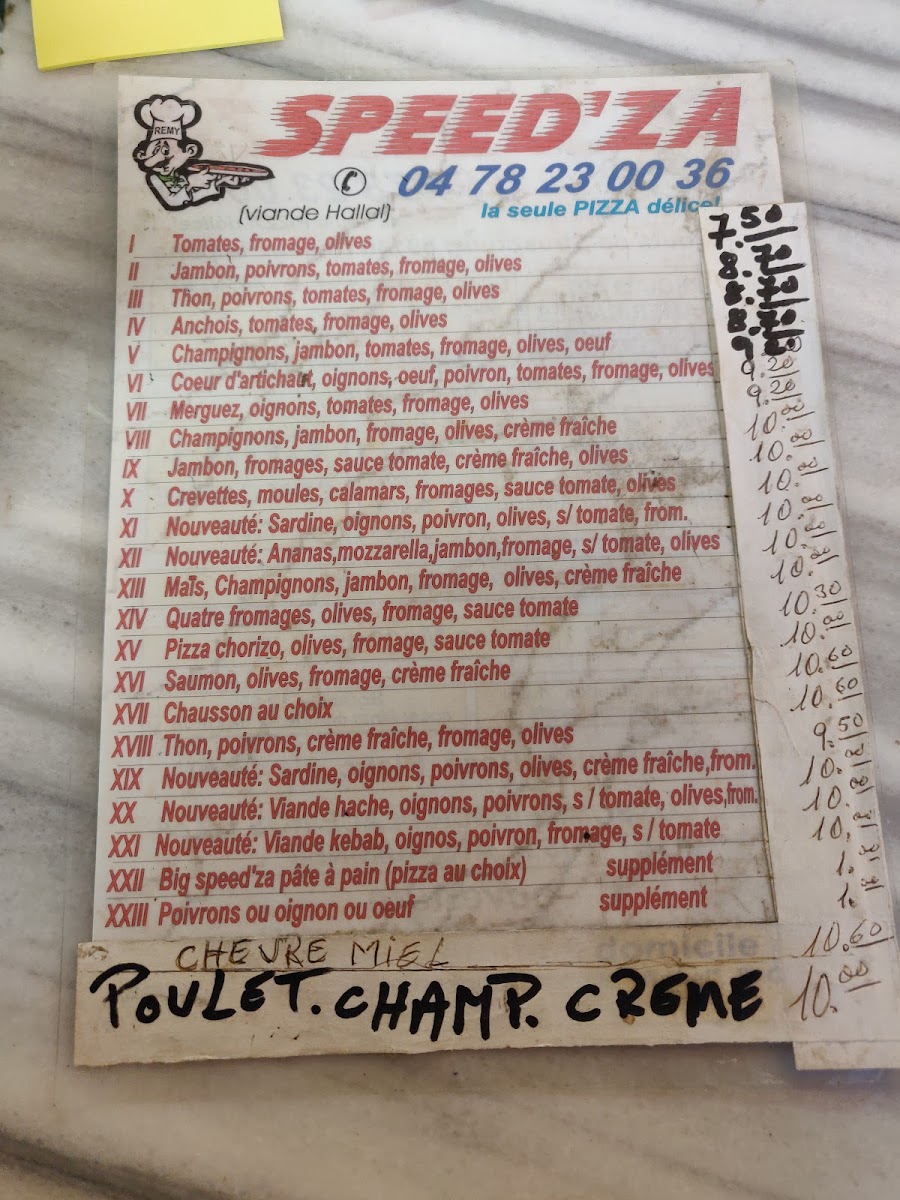 REMY
SPEED'ZA
04 78 23 00 36
(viande Hallal)
la seule PIZZA délice!
I Tomates, fromage, olives 7.50
II Jambon, poivrons, tomates, fromage, olives
III Thon, poivrons, tomates, fromage, olives
IV Anchois, tomates, fromage, olives
V Champignons, jambon, tomates, fromage, olives, oeuf
VI Coeur d'artichaut, oignons, oeuf, poivron, tomates, fromage, olives 9.20
VII Merguez, oignons, tomates, fromage, olives 9.20
VIII Champignons, jambon, fromage, olives, crème fraîche 10.00
IX Jambon, fromages, sauce tomate, crème fraîche, olives 10.00
X Crevettes, moules, calamars, fromages, sauce tomate, olives 10.00
XI Nouveauté: Sardine, oignons, poivron, olives, s/ tomate, from. 10.00
XII Nouveauté: Ananas,mozzarella,jambon,fromage, s/ tomate, olives 10.00
XIII Maïs, Champignons, jambon, fromage, olives, crème fraîche 10.00
XIV Quatre fromages, olives, fromage, sauce tomate 10.30
XV Pizza chorizo, olives, fromage, sauce tomate 10.00
XVI Saumon, olives, fromage, crème fraîche 10.60
XVII Chausson au choix 10.60
XVIII Thon, poivrons, crème fraîche, fromage, olives 9.50
XIX Nouveauté: Sardine, oignons, poivrons, olives, crème fraîche,from. 10.
XX Nouveauté: Viande hache, oignons, poivrons, s / tomate, olives,from. 10.
XXI Nouveauté: Viande kebab, oignos, poivron, fromage, s / tomate 10.
XXII Big speed'za pâte à pain (pizza au choix) supplément 1.
XXIII Poivrons ou oignon ou oeuf supplément 1.
CHEVRE MIEL 10.60
domicile
POULET. CHAMP. CREME 10.00